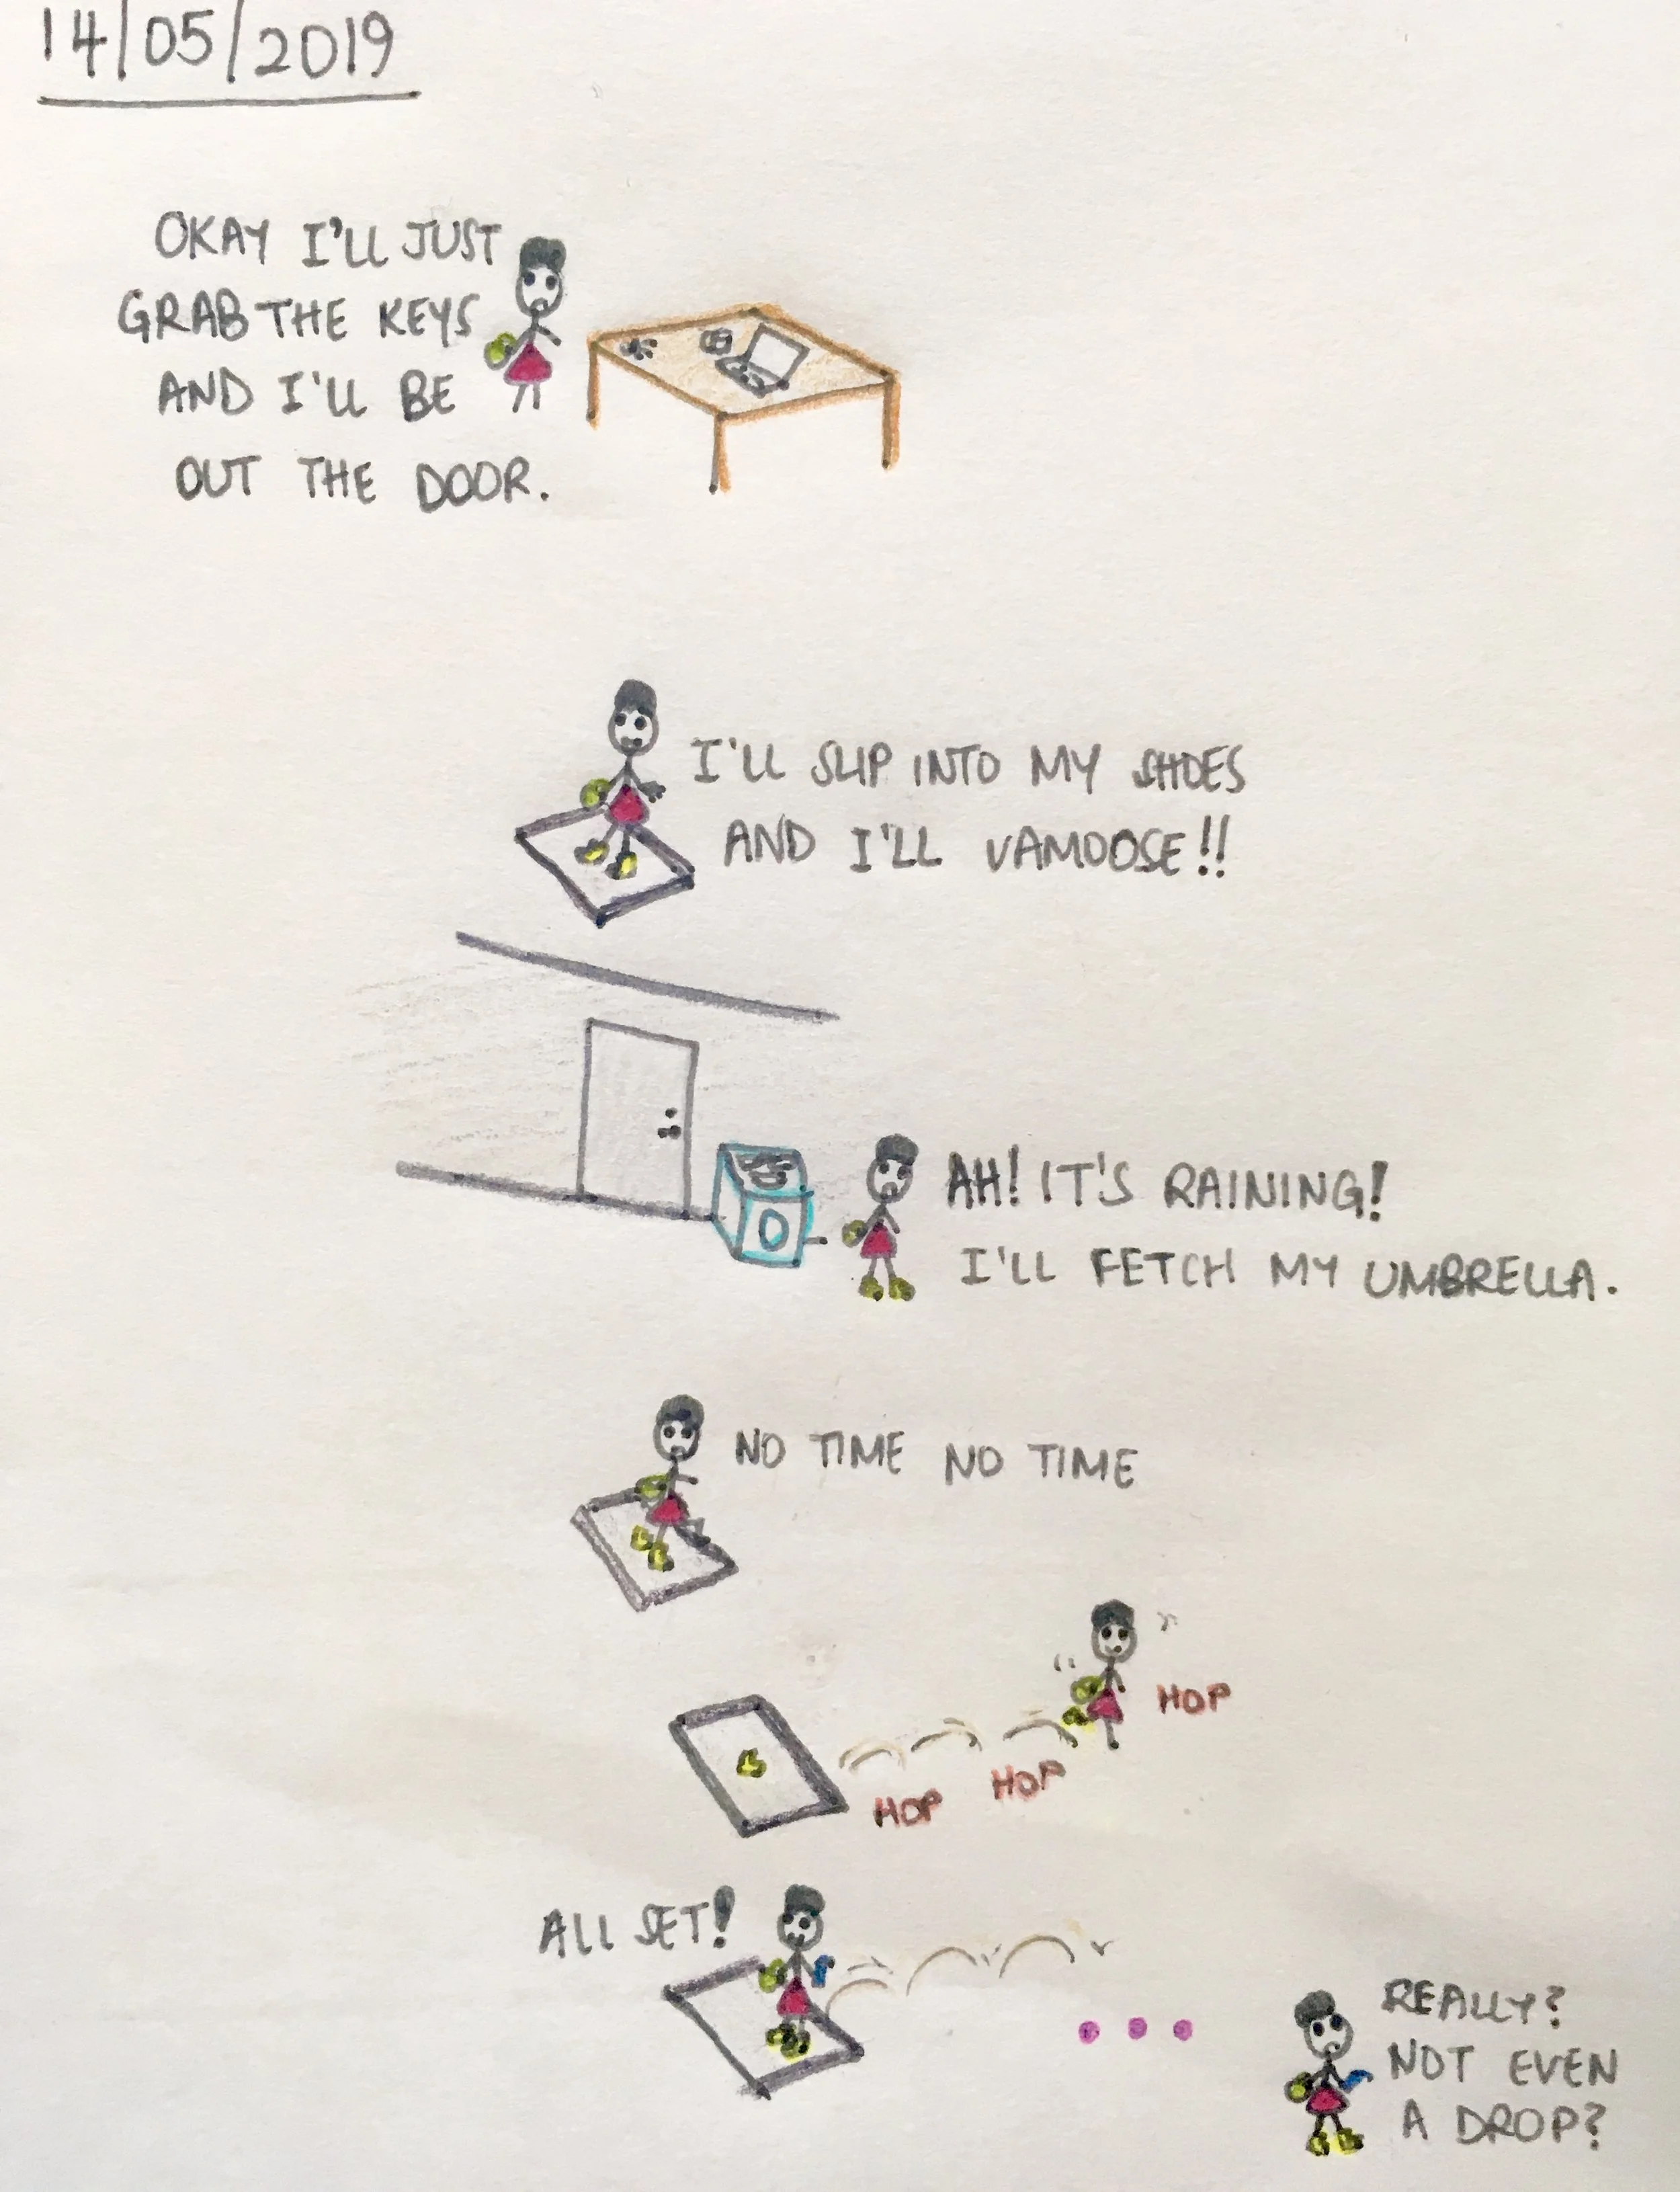 14/05/2019
OKAY I'LL JUST
GRAB THE KEYS
AND I'LL BE
OUT THE DOOR.
I'LL SLIP INTO MY SHOES
AND I'LL VAMOOSE!!
AH! IT'S RAINING!
I'LL FETCH MY UMBRELLA.
NO TIME NO TIME
HOP
HOP
HOP
ALL SET!
REALLY?
NOT EVEN
A DROP?